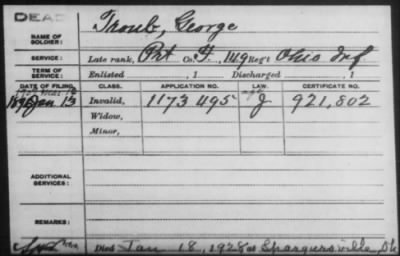 DEAD
NAME OF SOLDIER: Troub, George
SERVICE: Late rank, Pvt Co. F, 149 Reg't Ohio Inf
TERM OF SERVICE: Enlisted , 1 Discharged , 1
DATE OF FILING. CLASS. APPLICATION NO. LAW. CERTIFICATE NO.
1896 Jan 13 Invalid, 1173495 J 921,802
Widow,
Minor,
ADDITIONAL SERVICES:
REMARKS:
Died Jan 18, 1928 at Spargursville, Oh